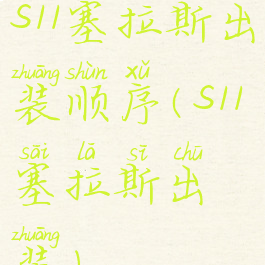 S11塞拉斯出
zhuāng shùn xǔ
装顺序(S11
sāi lā sī chū
塞拉斯出
zhuāng
装)